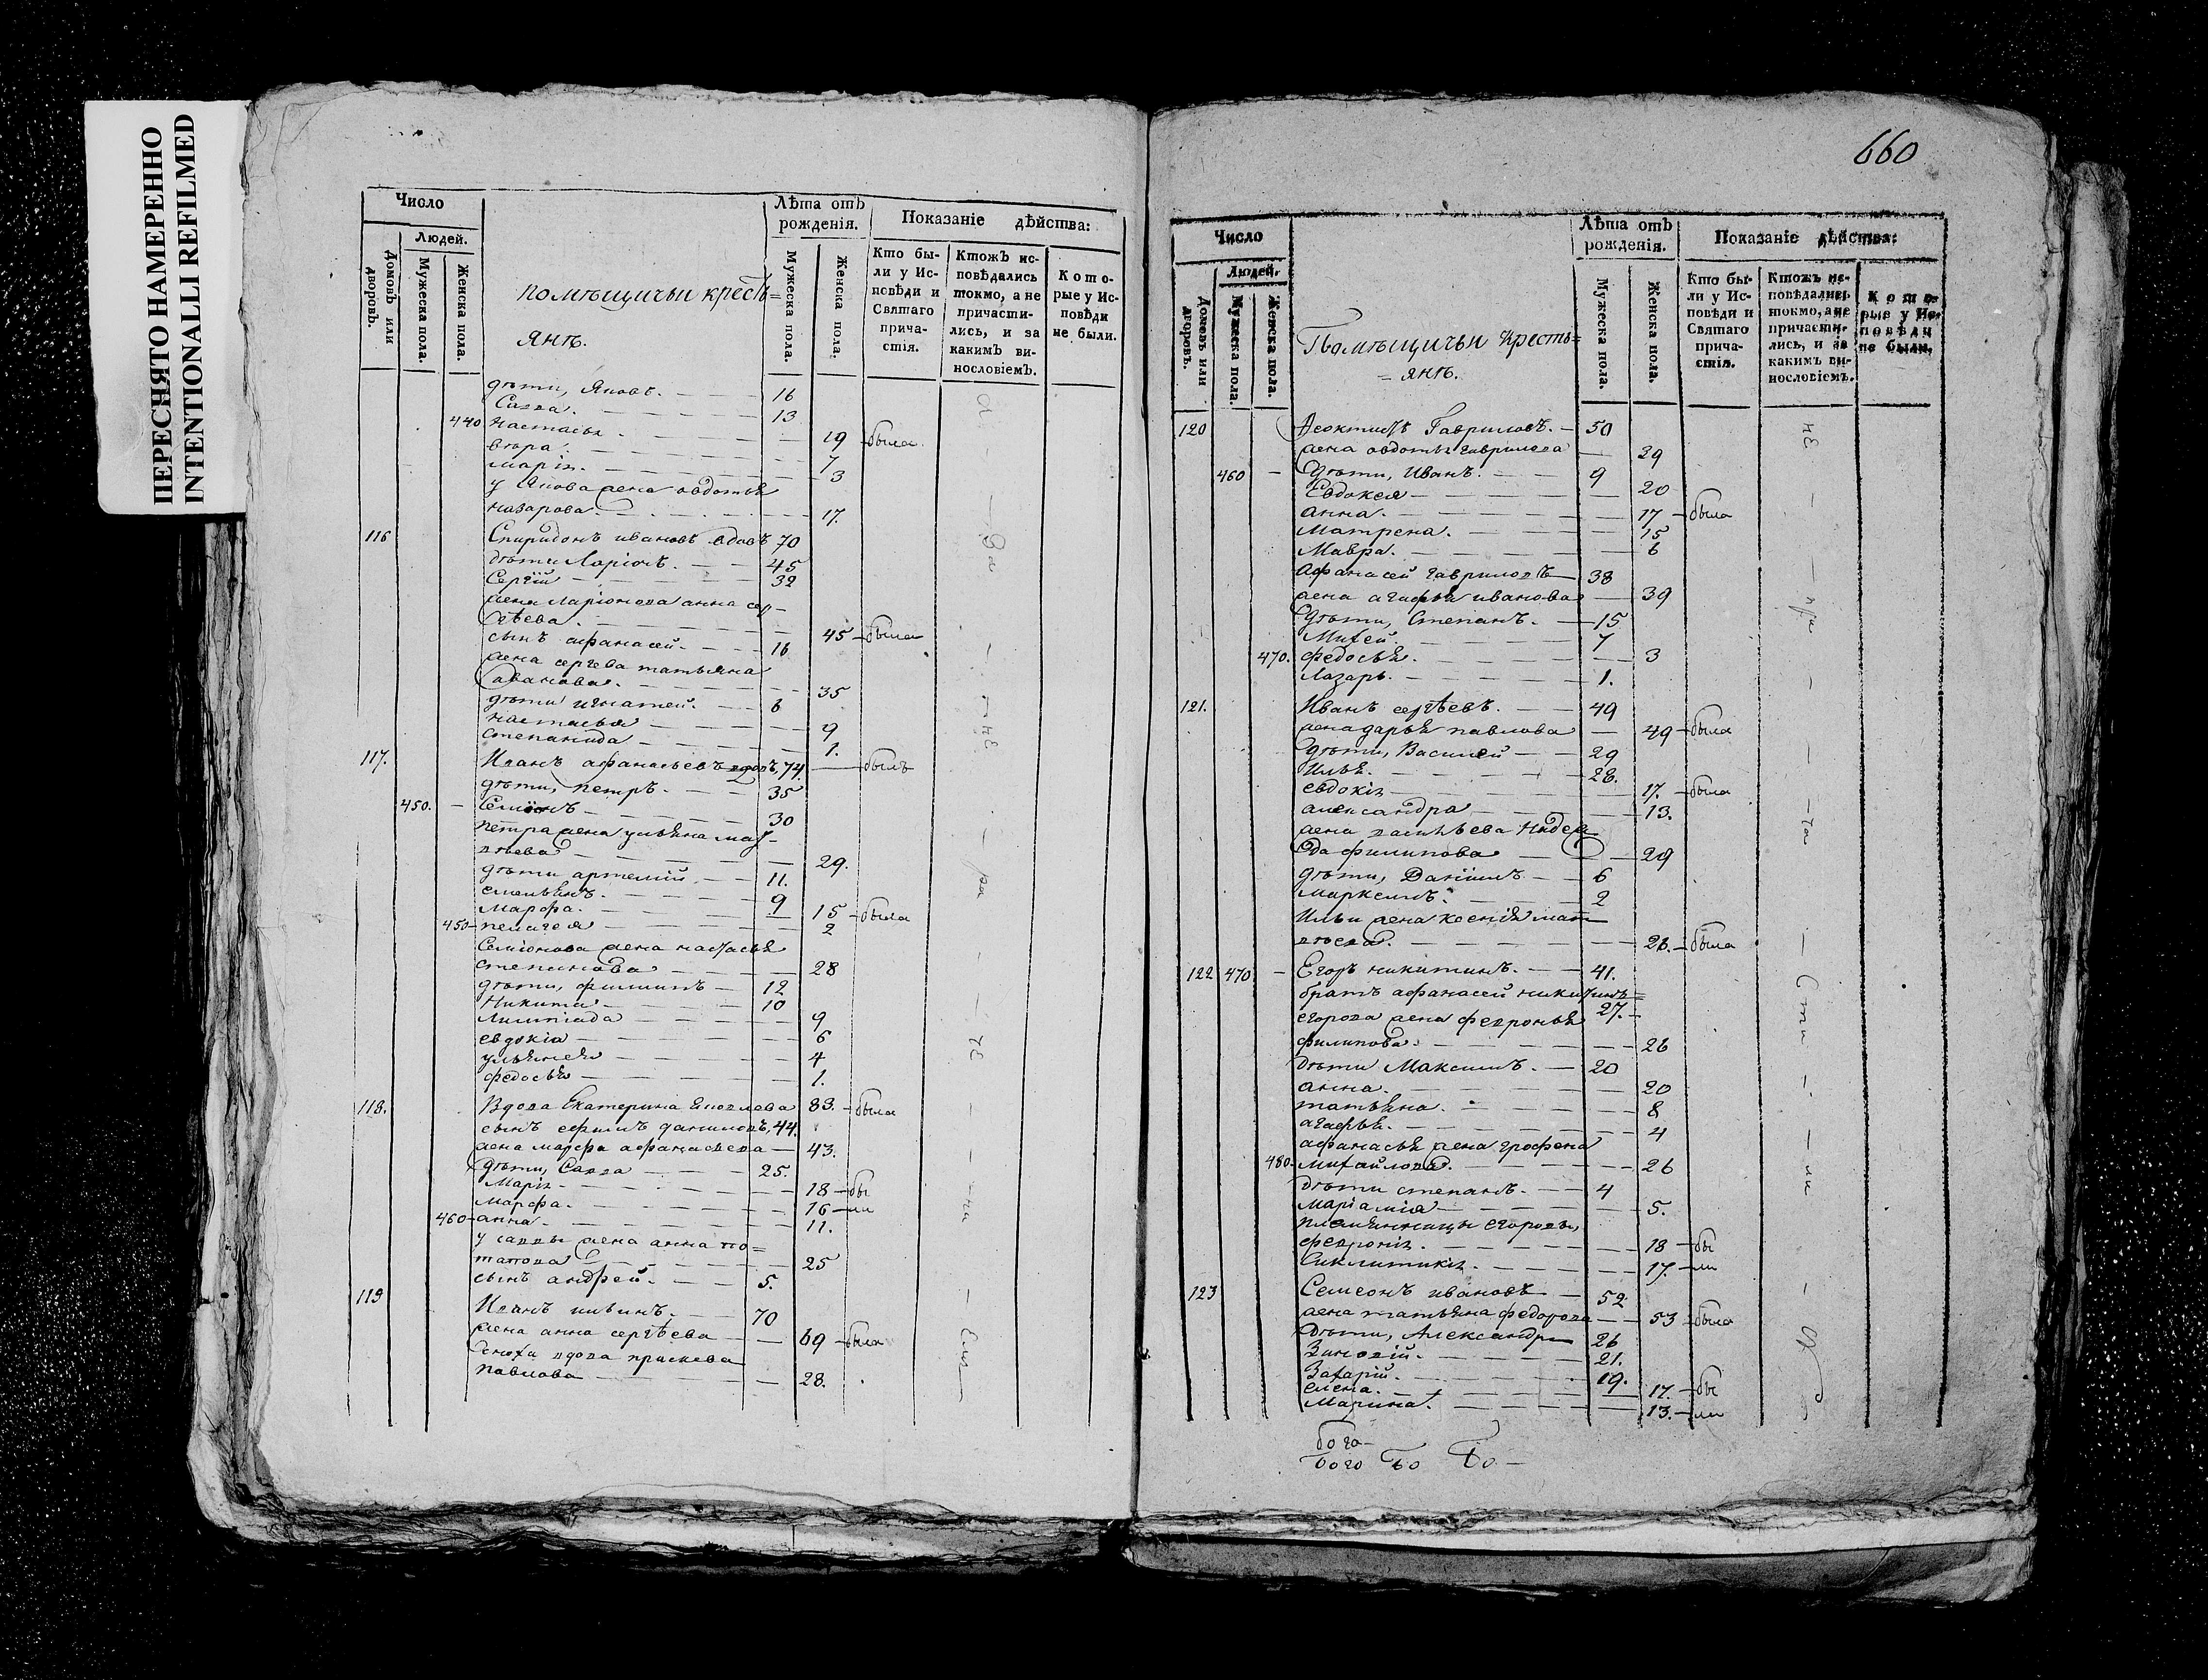 ПЕРЕСНЯТО НАМЕРЕННО
INTENTIONALLI REFILMED
Число
Людей.
Домовъ или дворовъ.
Мужеска пола.
Женска пола.
помѣщичьи кресть=
янъ.
Лѣта отъ рожденія.
Мужеска пола.
Женска пола.
Показаніе дѣйства:
Кто были у Исповѣди и Святаго причастія.
Ктожъ исповѣдались токмо, а не причастились, и за какимъ винословіемъ.
Которые у Исповѣди не были.
дѣти, Яковъ. 16
Савва. 13
440 настасья 19 была
вѣра. 7
марія. 3
у Якова жена овдотья
назарова 17.
116 Спиридонъ ивановъ вдовъ 70
дѣти Ларіонъ. 45
Сергій 32
жена ларіонова анна сер-
гѣева. 45 была
сынъ афанасей. 16
жена сергева татьяна
35
дѣти игнатей. 6
настасья 9
степанида 1.
117. Иванъ афанасьевъ вдовъ, 74. былъ
дѣти, петръ. 35
450. Семіонъ 30
петра жена ульяна мат-
вѣева 29.
дѣти артемій 11.
емельянъ. 9
Марфа. 15 была
450 пелагея 2
Семіонова жена настасья
степанова 28
дѣти, филипъ 12
Никита 10
Лимпіада 9
евдокіа 6
ульянея 4
федосья 1.
118. Вдова Екатерина Яковлева 83. была
сынъ ефимъ даниловъ, 44.
жена марфа афанасьева 43.
дѣти, Савва 25.
Марія 18 бы
Марфа. 16 ли
460 анна 11.
у саввы жена анна по=
тапова 25
сынъ андрей. 5.
119 Иванъ ильинъ. 70
жена анна сергѣева 69 была
сноха вдова праскева
павлова 28.
660
Число
Людей.
Домовъ или дворовъ.
Мужеска пола.
Женска пола.
Помѣщичьи Кресть=
= янъ.
Лѣта отъ рожденія.
Мужеска пола.
Женска пола.
Показаніе дѣйства:
Кто были у Исповѣди и Святаго причастія.
Ктожъ исповѣдались токмо, а не причастились, и за какимъ винословіемъ.
Которые у Исповѣди не были.
120 Феоктистъ Гавриловъ. 50
жена овдотья гаврилова 39
460 Дѣти, Иванъ. 9
Евдокея 20
анна. 17 была
Матрена. 15
Мавра. 6
Афанасей гавриловъ 38
жена агафья иванова 39
Дѣти, Степанъ. 15
Михей 7
470. федосья. 3
Лазарь. 1.
121. Иванъ сергѣевъ. 49
жена дарья павлова 49 была
дѣти, Василей 29
Илья. 28.
евдокія 17. была
александра 13.
жена васильева Надеж
да филипова 29
дѣти, Даніилъ 6
2
Ильи жена ксенія мат
вѣева. 26. была
122 470 Егоръ никитинъ. 41.
братъ афанасей никитинъ=
27.
егорова жена февронья
филипова 26
дѣти Максимъ. 20
анна. 20
татьяна. 8
агафья. 4
афанасья жена грофена
480. михайлова. 26
дѣти степанъ. 4
Маріамія 5.
племянницы егоровы,
феврония. 18 бы
Сиклитикія. 17. ли
123 Семеонъ ивановъ 52
жена татьяна федорова 53 была
дѣти, Александръ 26
Зиновій. 21.
Захарій. 19.
елена. 17. бы
Марина. 13. ли
бога
бого бо Бо